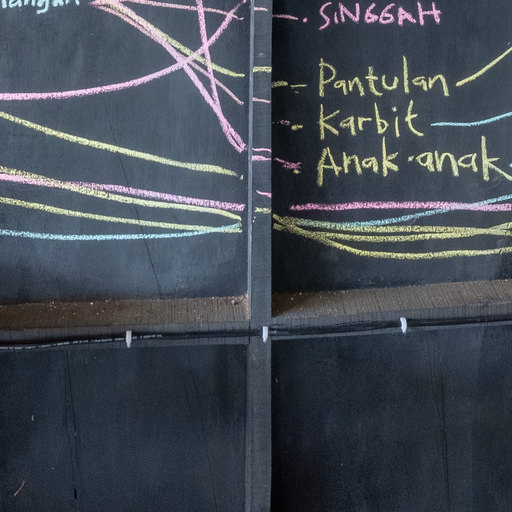 SiNGGAH
Pantulan
Karbit
Anak-anak